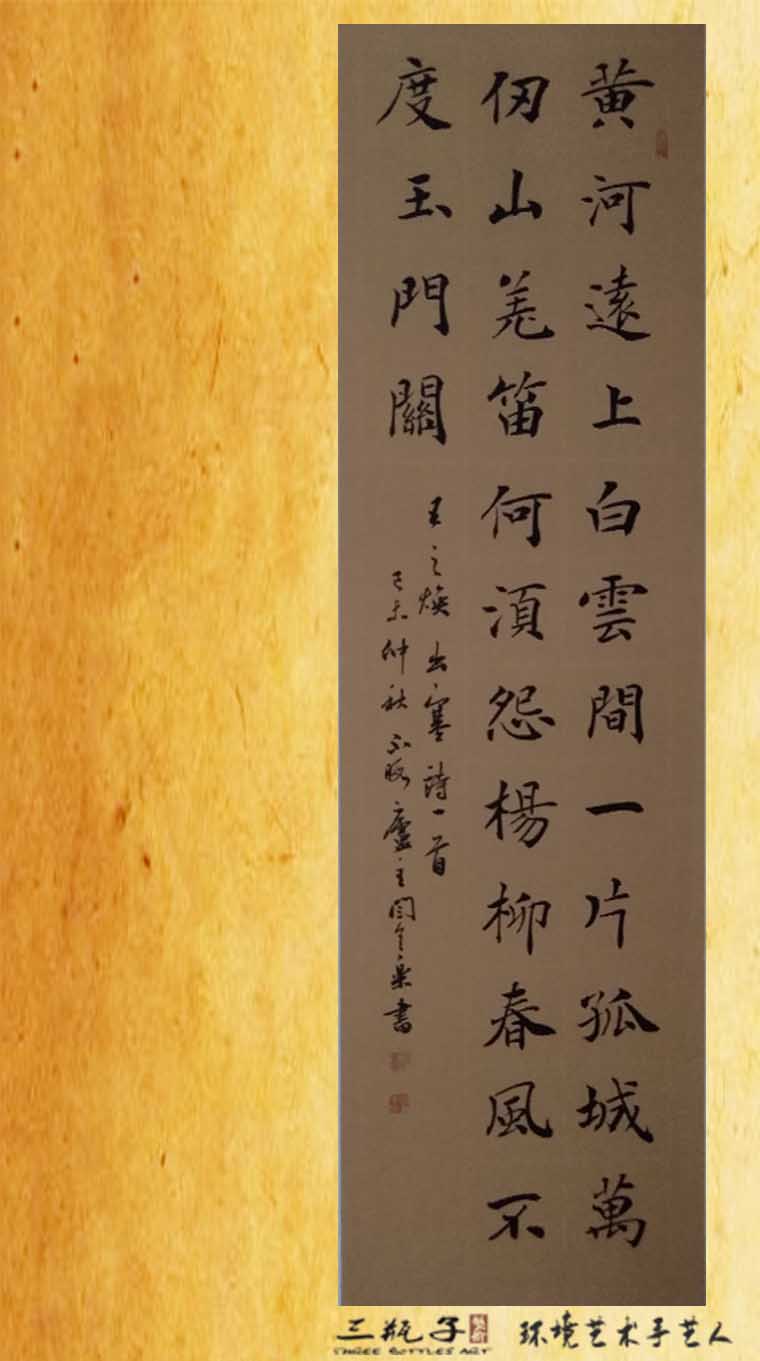 黃河遠上白雲間一片孤城萬
仞山羌笛何須怨楊柳春風不
度玉門關
王之煥出塞詩一首
己未仲秋
廬主閆
書
三瓶子 环境艺术手艺人
THREE BOTTLES ART